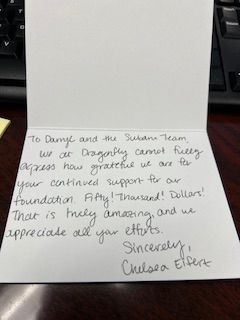 To Darryl and the Subaru Team,
We at Dragonfly cannot fully
express how grateful we are for
your continued support for our
foundation. Fifty! Thousand! Dollars!
That is truly amazing, and we
appreciate all your efforts.
Sincerely,
Chelsea Eifert